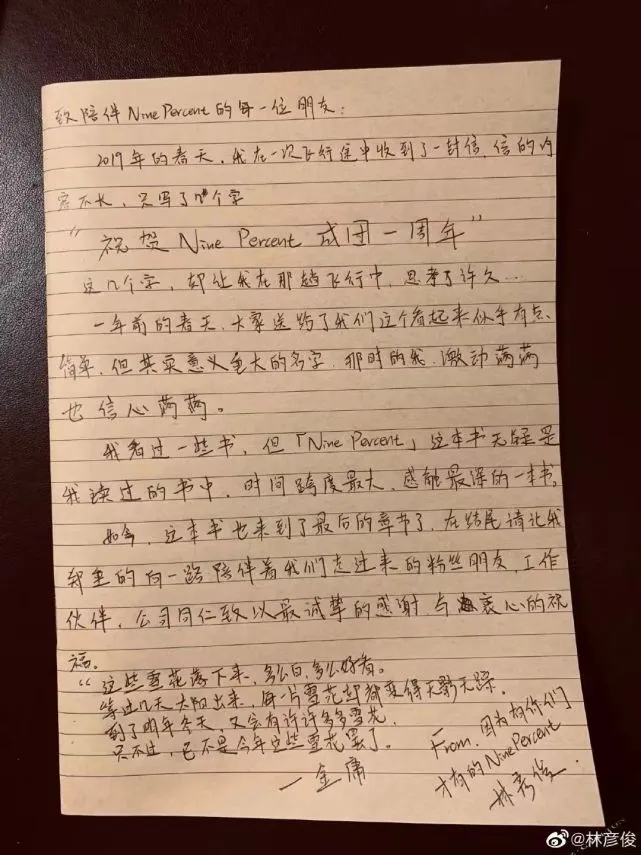 致陪伴Nine Percent的每一位朋友：
2019年的春天，我在一次飞行途中收到了一封信，信的内
容不长，只写了几个字
“祝贺Nine Percent 成团一周年”
这几个字，却让我在那趟飞行中，思考了许久...
一年前的春天，大家送给了我们这个看起来似乎有点
简单，但其实意义重大的名字，那时的我，激动满满
也信心满满。
我看过一些书，但「Nine Percent」这本书无疑是
我读过的书中，时间跨度最大，感触最深的一本书。
如今，这本书也来到了最后的章节了，在结尾请让我
郑重的向一路陪伴着我们走过来的粉丝朋友，工作
伙伴，公司同仁致以最诚挚的感谢，与衷心的祝
福。
“这些雪花落下来，多么白，多么好看。
等过几天太阳出来，每一片雪花却都变得无影无踪。
到了明年冬天，又会有许许多多雪花，
只不过，已不是今年这些雪花罢了。
—金庸
From.因为有你们
才有的Nine Percent
林彦俊
@林彦俊